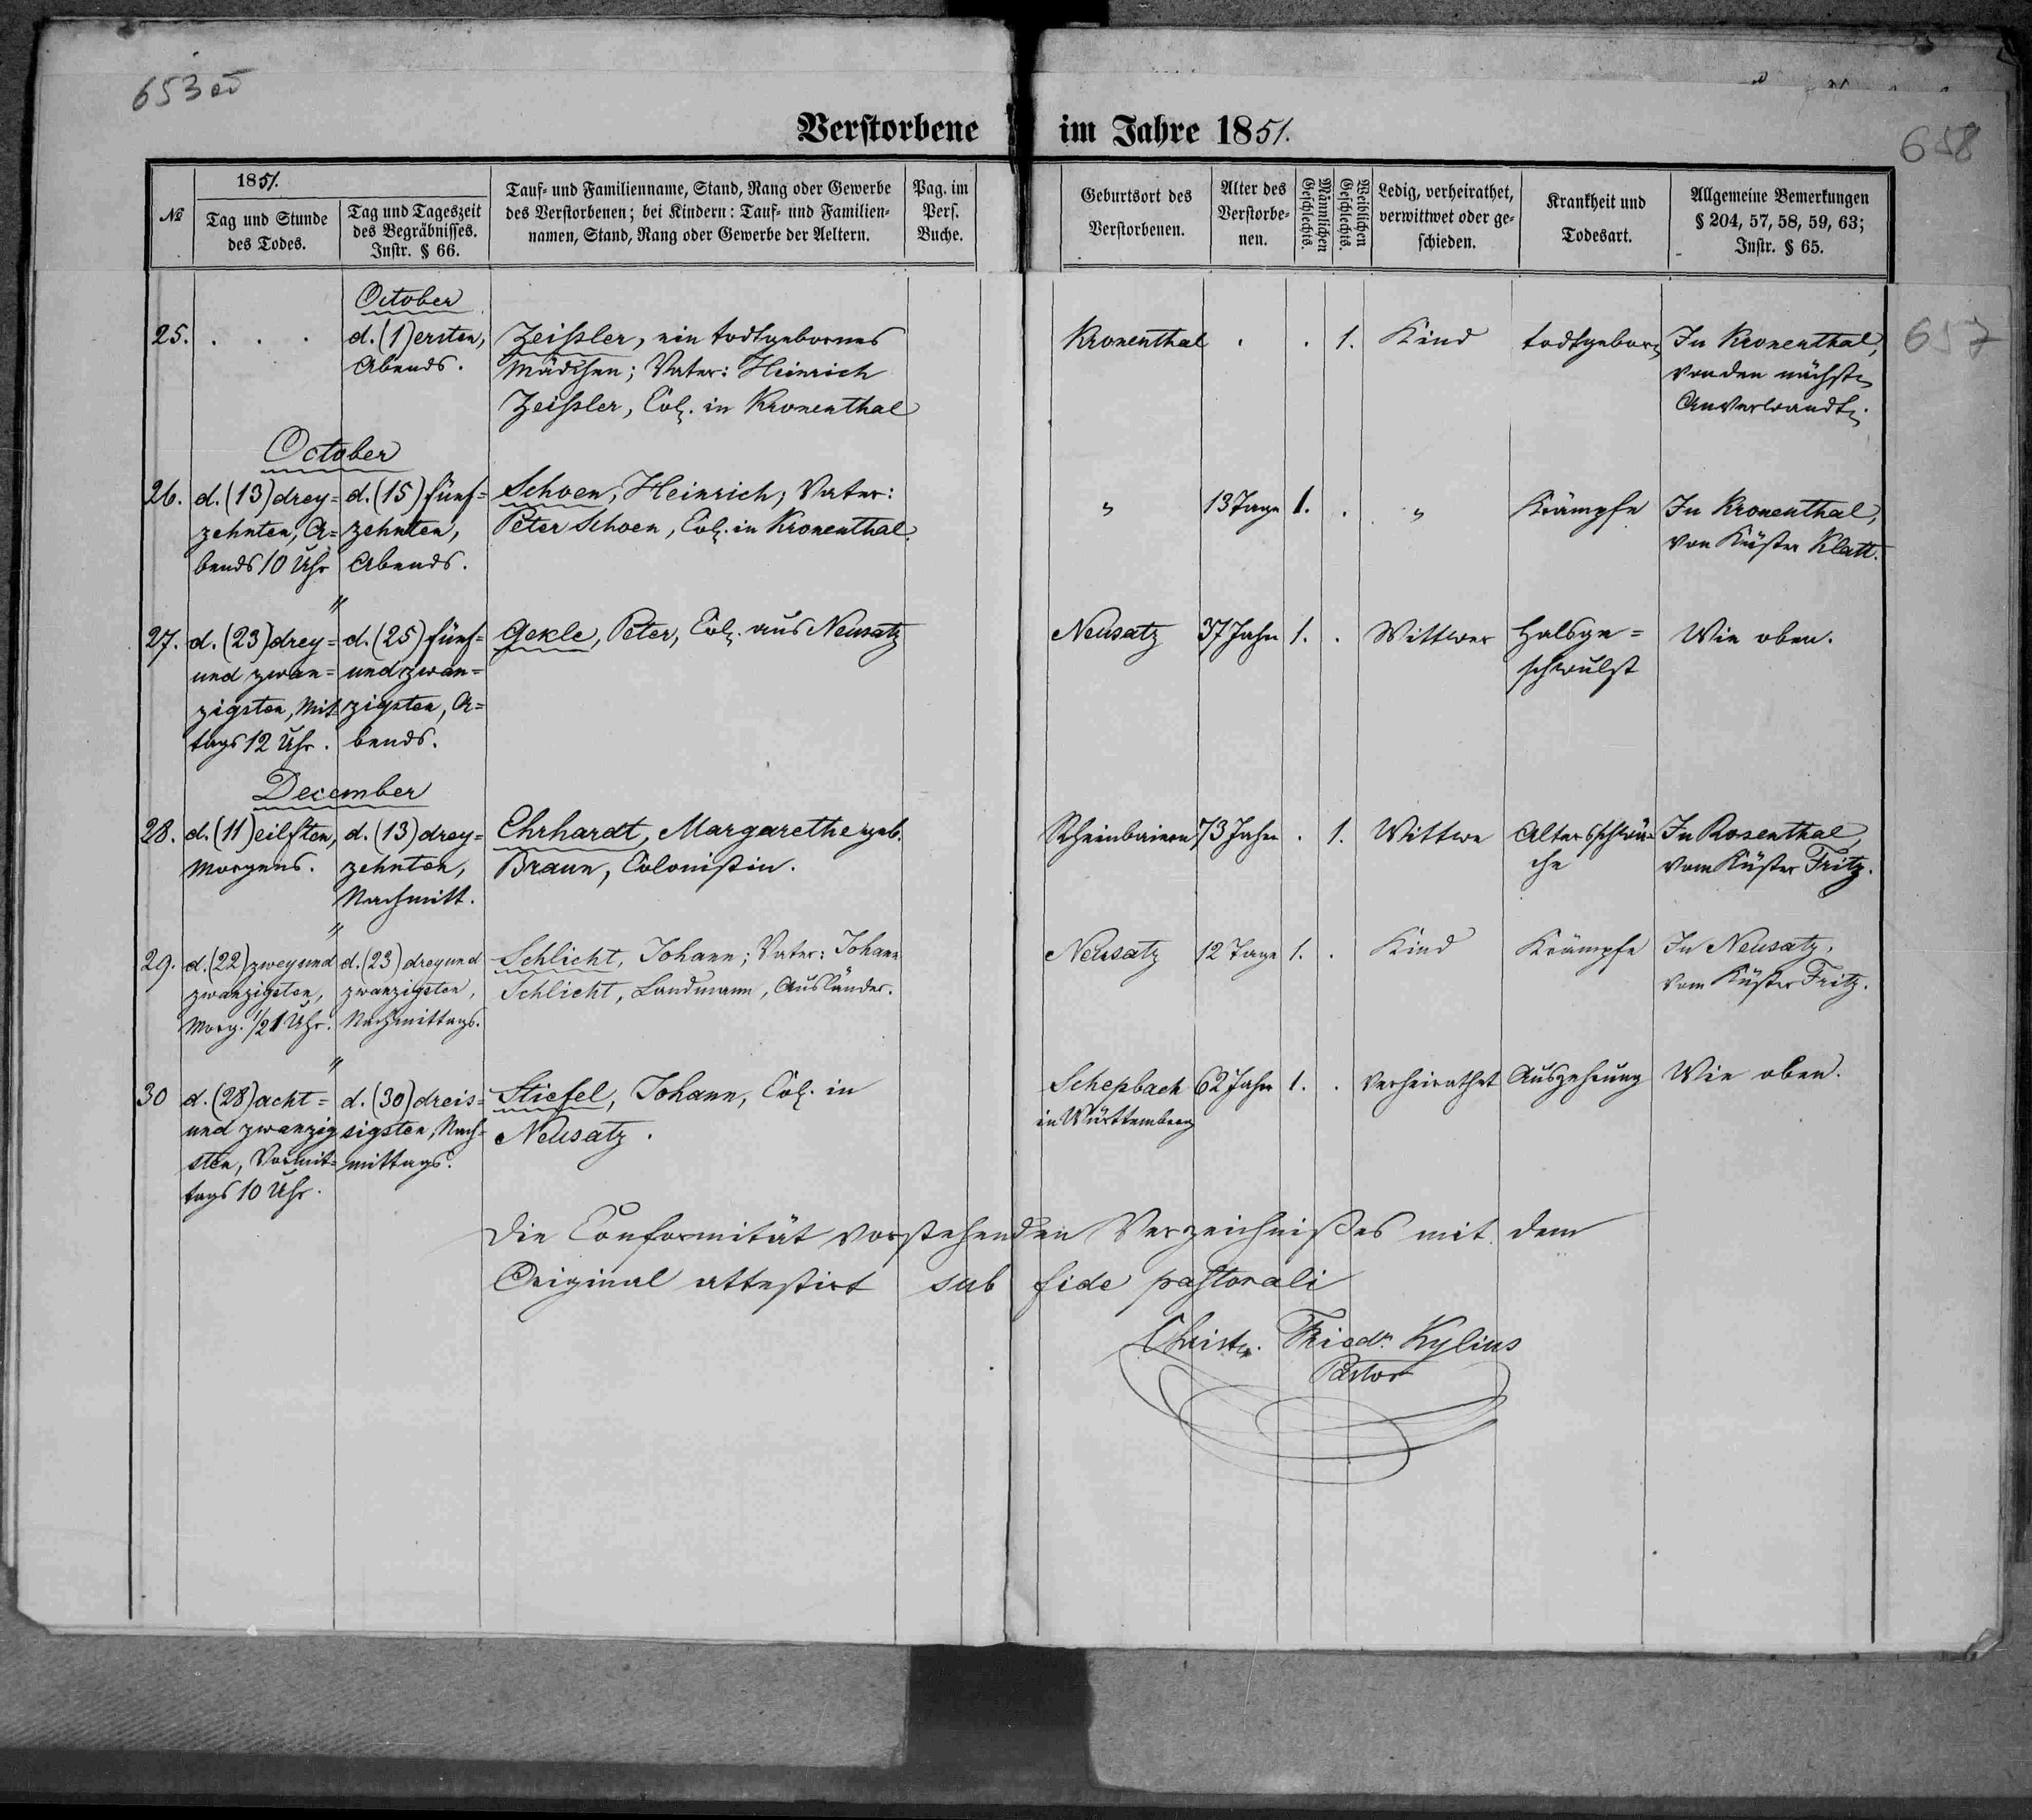 653 об
658
657
Verstorbene im Jahre 1851.
№
1851.
Tag und Stunde
des Todes.
Tag und Tageszeit
des Begräbnisses.
Instr. § 66.
Tauf- und Familienname, Stand, Rang oder Gewerbe
des Verstorbenen; bei Kindern: Tauf- und Familien-
namen, Stand, Rang oder Gewerbe der Aeltern.
Pag. im
Pers.
Buche.
Geburtsort des
Verstorbenen.
Alter des
Verstorbe-
nen.
Männlichen
Geschlechts.
Weiblichen
Geschlechts.
Ledig, verheirathet,
verwittwet oder ge-
schieden.
Krankheit und
Todesart.
Allgemeine Bemerkungen
§ 204, 57, 58, 59, 63;
Instr. § 65.
October
25. . . .
d. (1) ersten,
Abends.
Zeißler, ein todtgebornes
Mädchen; Vater: Heinrich
Zeißler, Col. in Kronenthal
Kronenthal . . 1. Kind todtgeboren
In Kronenthal,
von den nächsten
Anverwandten.
October
26. d. (13) drey=
zehnten, A=
bends 10 Uhr
d. (15) fünf=
zehnten,
Abends.
Schoen, Heinrich; Vater:
Peter Schoen, Col. in Kronenthal.
" 13 Tage 1. . " Krämpfe
In Kronenthal,
von Küster Klatt.
"
27. d. (23) drey=
und zwan=
zigsten, Mit
tags 12 Uhr.
d. (25) fünf=
und zwan=
zigsten, A=
bends.
Gekle, Peter, Col. aus Neusatz
Neusatz 37 Jahre 1. . Wittwer
Halsge=
schwulst
Wie oben.
December
28. d. (11) eilften,
Morgens.
d. (13) drey=
zehnten,
Nachmitt.
Ehrhardt, Margarethe geb.
Braun, Colonistin.
Rheinbaiern 73 Jahre . 1. Wittwe
Altersschwä=
che
In Rosenthal,
vom Küster Fritz.
"
29. d. (22) zwey und
zwanzigsten,
Morg. 1/2 1 Uhr.
d. (23) drey und
zwanzigsten,
Nachmittags.
Schlicht, Johann; Vater: Johann
Schlicht, Landmann, Ausländer.
Neusatz 12 Tage 1. . Kind Krämpfe
In Neusatz,
vom Küster Fritz.
"
30 d. (28) acht=
und zwanzig
sten, Vormit=
tags 10 Uhr.
d. (30) dreis=
sigsten, Nach=
mittags.
Stiefel, Johann, Col. in
Neusatz.
Schepbach
in Württemberg
62 Jahre 1. . Verheirathet Auszehrung Wie oben.
Die Conformität vorstehenden Verzeichnißes mit dem
Original attestirt sub fide pastorali
Christn. Friedr. Kylius
Pastor